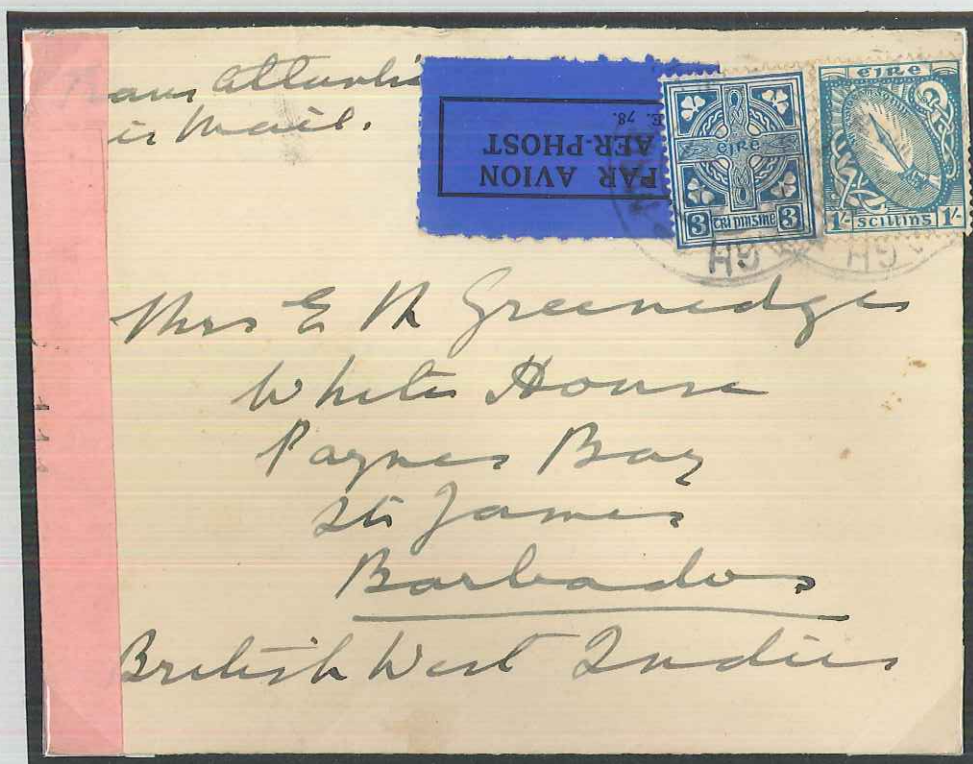 Trans Atlantic
Air Mail.
PAR AVION
AER-PHOST
E. 78.
éire
3 trí pinsine 3
éire
1/- scilling 1/-
Mrs E M Greenedge
White House
Paynes Bay
St James
Barbados
British West Indies